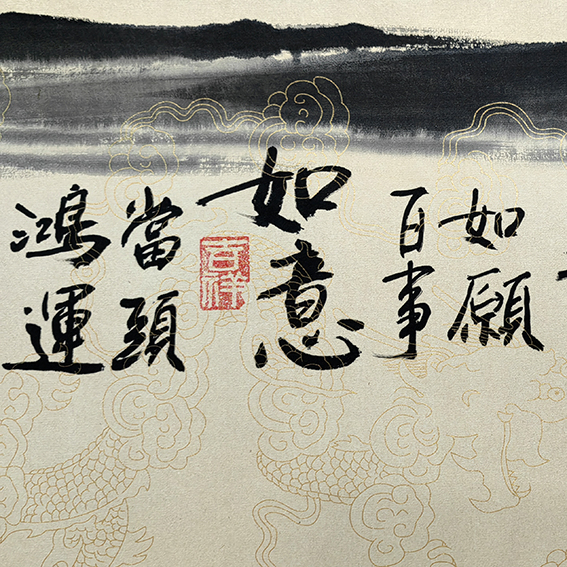 鴻運
當頭
吉祥
如意
百事
如願